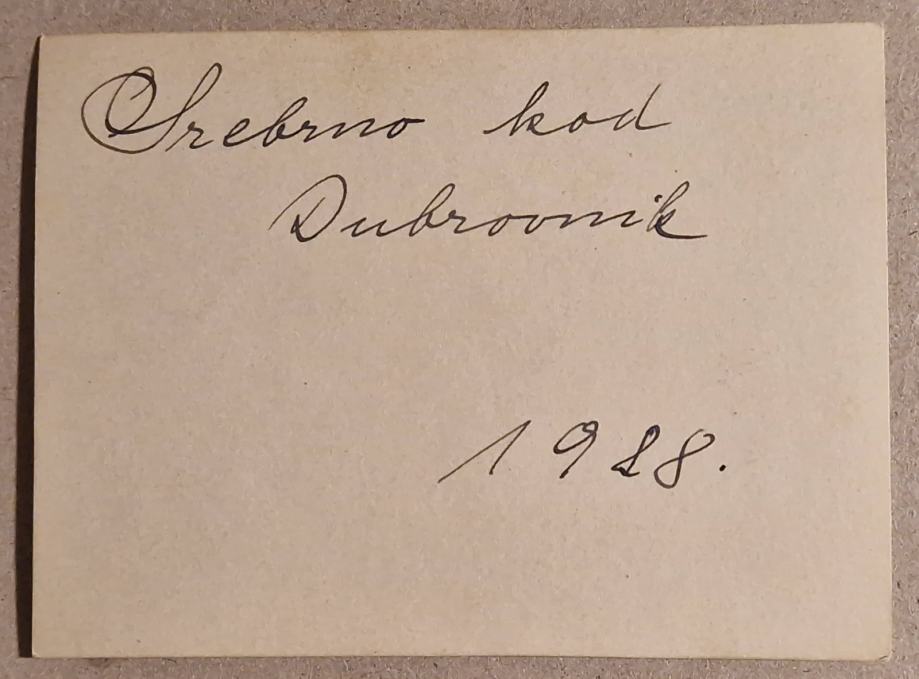 Srebrno kod
Dubrovnik
1928.